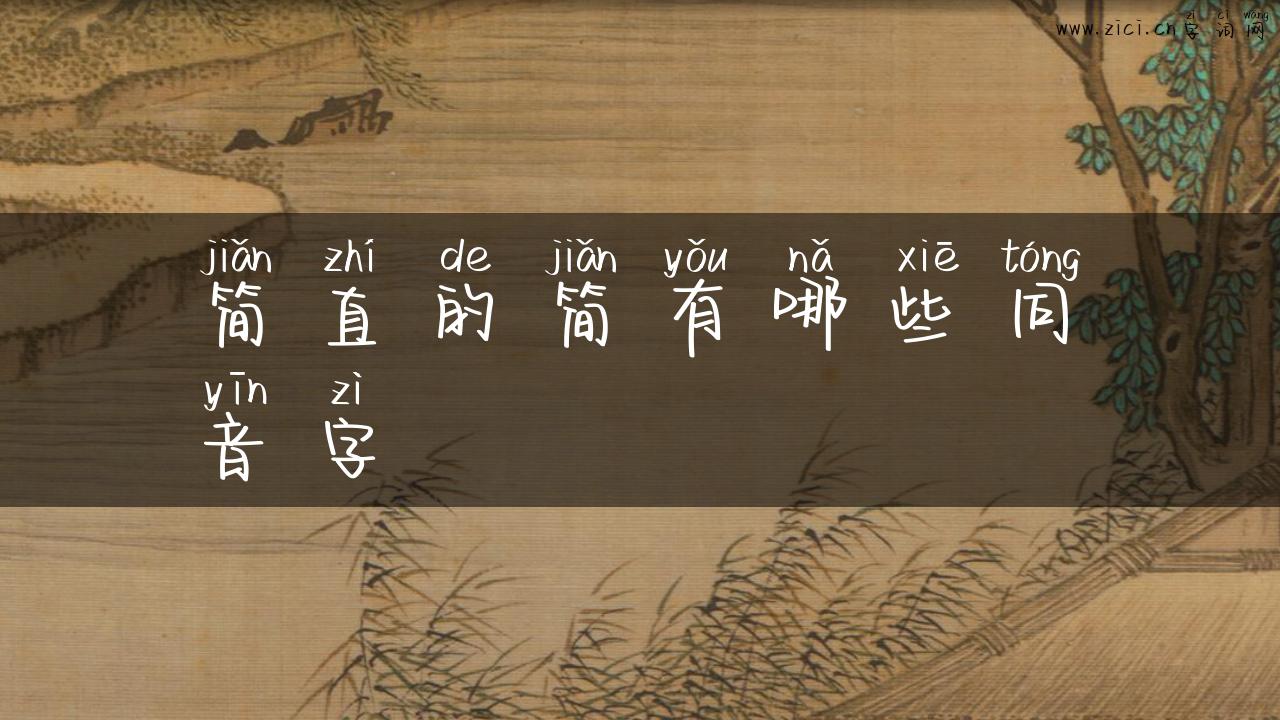 zì cí wǎng
www.zici.cn字词网
jiǎn zhí de jiǎn yǒu nǎ xiē tóng
简直的简有哪些同
yīn zì
音字